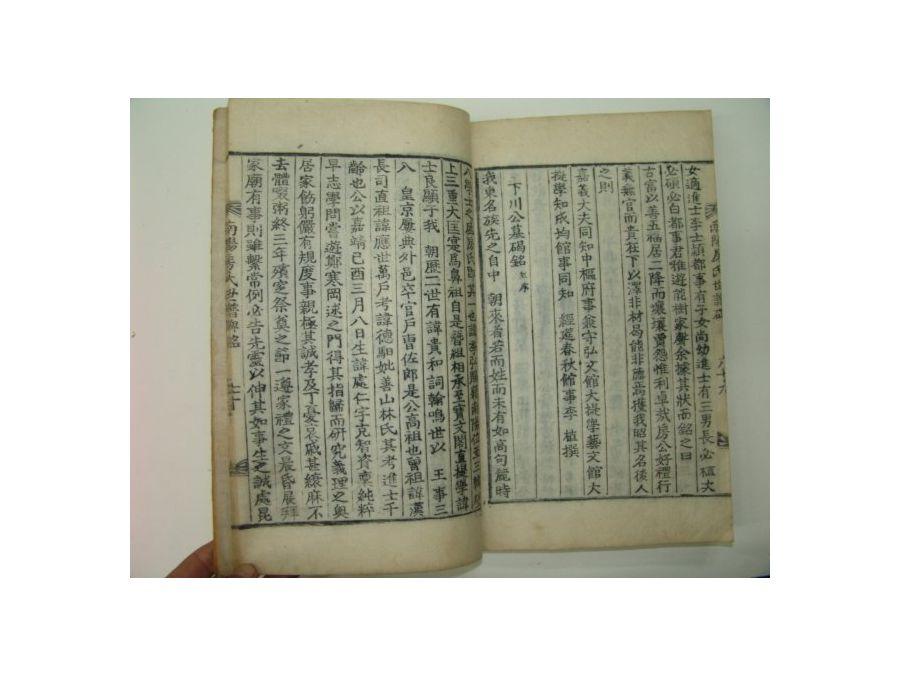 女適進士李士穎都事有子女尚幼進士有三男長必稙次
必碩必白都事君雅遊能樹家聲余據其狀而銘之曰
吉富以善五福居二降而壞壞賈怨惟利卓哉房公好禮行
義無官而貴在下以澤非材曷能非善焉獲我昭其名後人
之則
嘉義大夫同知中樞府事兼守弘文館大提學藝文館大
提學知成均館事同知 經筵春秋館事李 植撰
下川公墓碣銘 幷序
我東名族先之自中 朝來者若而姓而未有如高句麗時
上三重大匡寔爲鼻祖自是簪組相承至寶文閣直提學諱
士良顯于我 朝歷二世有諱貴和詞翰鳴世以 王事三
入 皇京屢典外邑卒官戶曹佐郎是公高祖也曾祖諱漢
長司直祖諱應世萬戶考諱德馳妣善山林氏其考進士千
齡也公以嘉靖己酉三月八日生諱處仁字克智資稟純粹
早志學問嘗遊鄭寒岡逑之門得其指歸而研究義理之奧
居家飭躬儼有規度事親極其誠孝及丁憂哀戚甚縗麻不
去體啜粥終三年殯窆祭奠之節一遵家禮之文晨昏展拜
家廟有事則雖繫常例必告先靈以伸其如事生之誠處昆
南陽房氏世譜碑銘